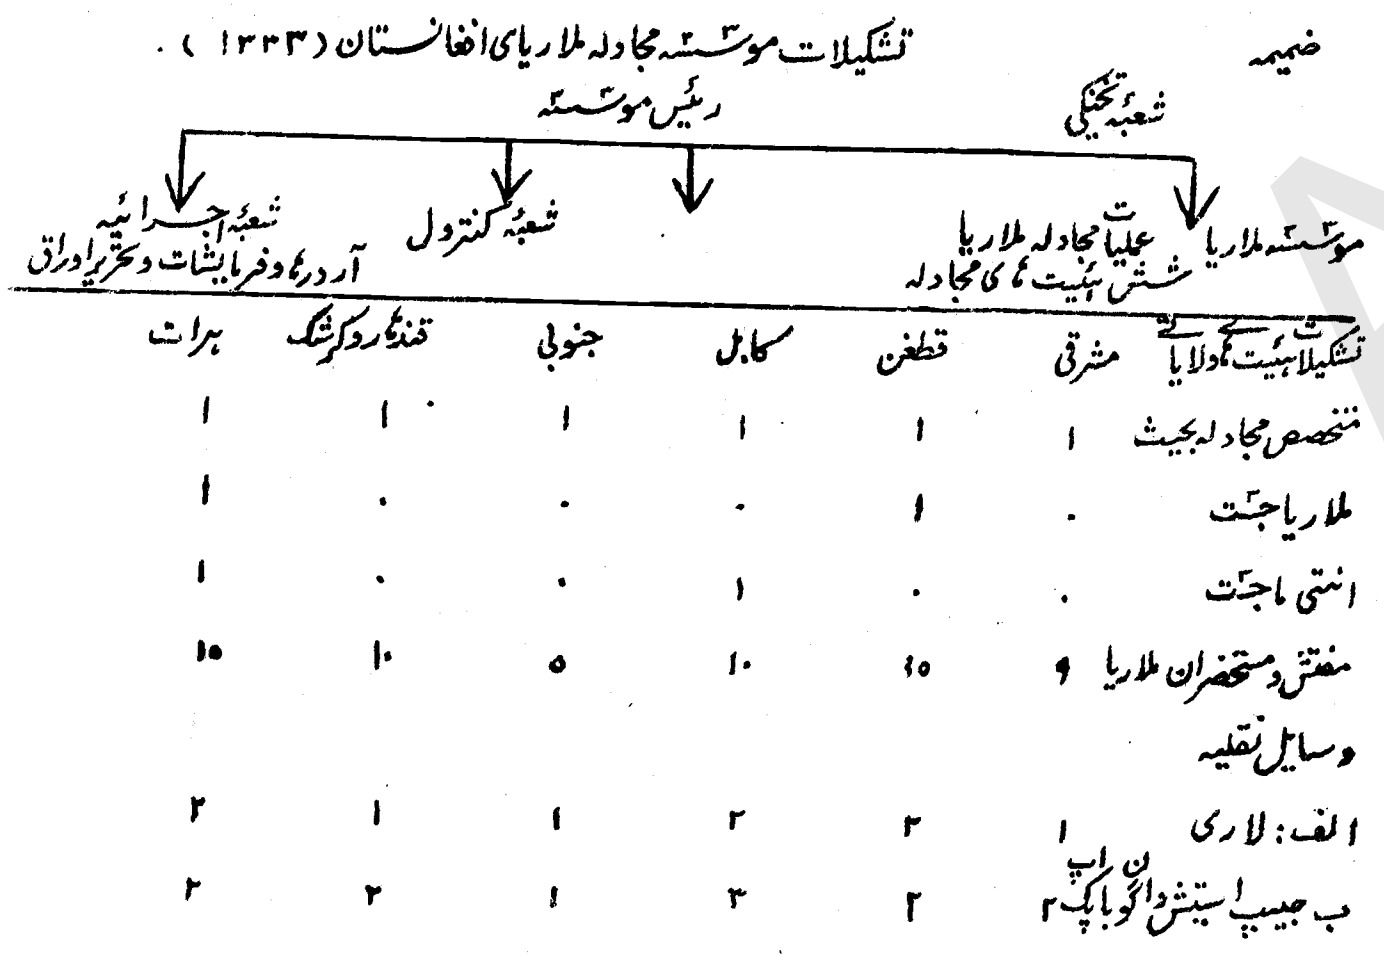 ضمیمه
تشکیلات موسسه مجادله ملاریای افغانستان (۱۳۳۳).
شعبهٔ تخنیکی
رئیس موسسه
موسسه ملاریا
عملیات مجادله ملاریا
شش هیئیت های مجادله
شعبهٔ کنترول
شعبهٔ اجرائیه
آردرها و فرمایشات و تحریر اوراق
تشکیلات هیئت های ولایات مشرقی قطغن کابل جنوبی قندهار و کرشک هرات
متخصص مجادله بحیث ۱ ۱ ۱ ۱ ۱ ۱
ملاریاجست ۰ ۱ ۰ ۰ ۰ ۱
انتی ماجست ۰ ۰ ۱ ۰ ۰ ۱
مفتش و مستحضران ملاریا ۹ ۱۵ ۱۰ ۵ ۱۰ ۱۵
وسایل نقلیه
الف: لاری ۱ ۲ ۲ ۱ ۱ ۲
ب جیپ استیشن واگون با پک اپ ۲ ۲ ۳ ۱ ۲ ۲